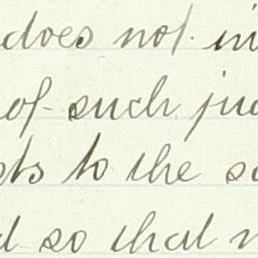 does not in
of such ju
to the s
so that